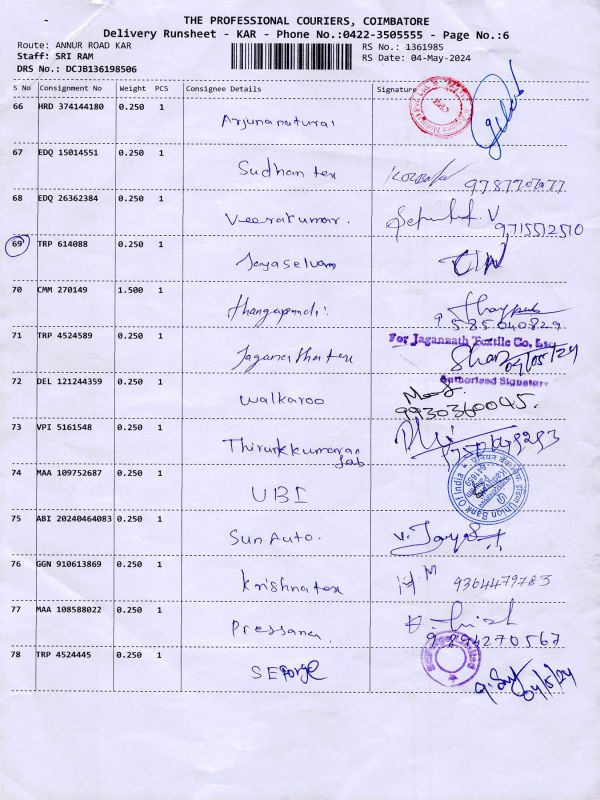 THE PROFESSIONAL COURIERS, COIMBATORE
Delivery Runsheet - KAR - Phone No.:0422-3505555 - Page No.:6
Route: ANNUR ROAD KAR
RS No.: 1361985
Staff: SRI RAM
RS Date: 04-May-2024
DRS No.: DCJB136198506
S No Consignment No Weight PCS Consignee Details Signature
66 HRD 374144180 0.250 1
Arjunanatural
67 EDQ 15014551 0.250 1
Sudhan tex
68 EDQ 26362384 0.250 1
Veerakumar.
9715512510
69 TRP 614088 0.250 1
Jayaselvam
70 CMM 270149 1.500 1
thangapandi
9585040829
71 TRP 4524589 0.250 1
For Jagannath Textile Co. Ltd
Jaganatha tex
04/05/24
Authorised Signatory
72 DEL 121244359 0.250 1
Walkaroo
9930360045.
73 VPI 5161548 0.250 1
Thirukkumaran
fab
74 MAA 109752687 0.250 1
UBI
Union Bank Of India
75 ABI 20240464083 0.250 1
Sun Auto.
76 GGN 910613869 0.250 1
Krishna tex
M
9364479783
77 MAA 108588022 0.250 1
Pressana
9894270567
78 TRP 4524445 0.250 1
SE Forge
04/5/24